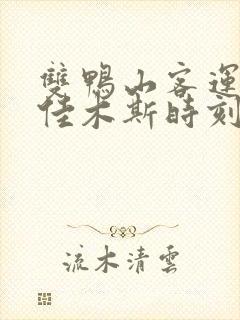 雙鴨山客運
佳木斯時刻
流木清雲